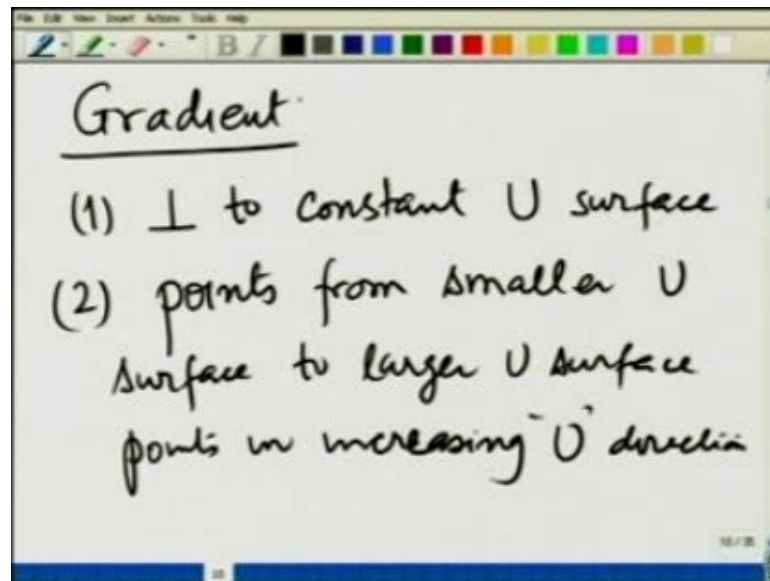 File Edit View Insert Actions Tools Help
B I
Gradient
(1) ⊥ to constant U surface
(2) points from smaller U
surface to larger U surface
points in increasing "U" direction
10 / 35